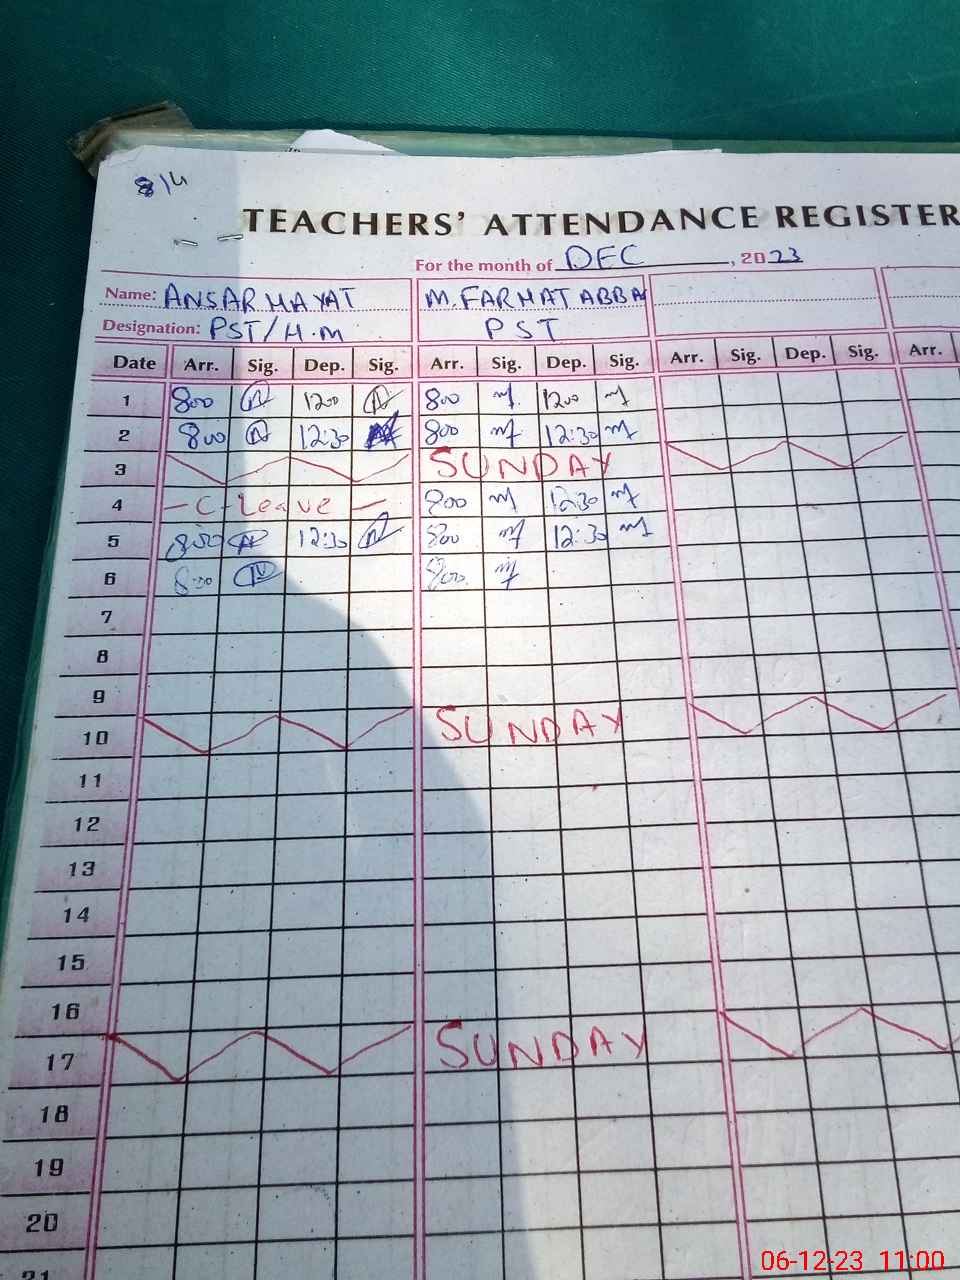 8/4
TEACHERS' ATTENDANCE REGISTER
For the month of DEC, 2023
Name: ANSAR HAYAT M. FARHAT ABBA
Designation: PST/H.M PST
Date Arr. Sig. Dep. Sig. Arr. Sig. Dep. Sig. Arr. Sig. Dep. Sig. Arr.
1 800 1200 800 1200
2 800 12:30 800 12:30
3 SUNDAY
4 - C-Leave - 800 1230
5 800 12:30 800 12:30
6 8:00 800
7
8
9
10 SUNDAY
11
12
13
14
15
16
17 SUNDAY
18
19
20
21
06-12-23 11:00